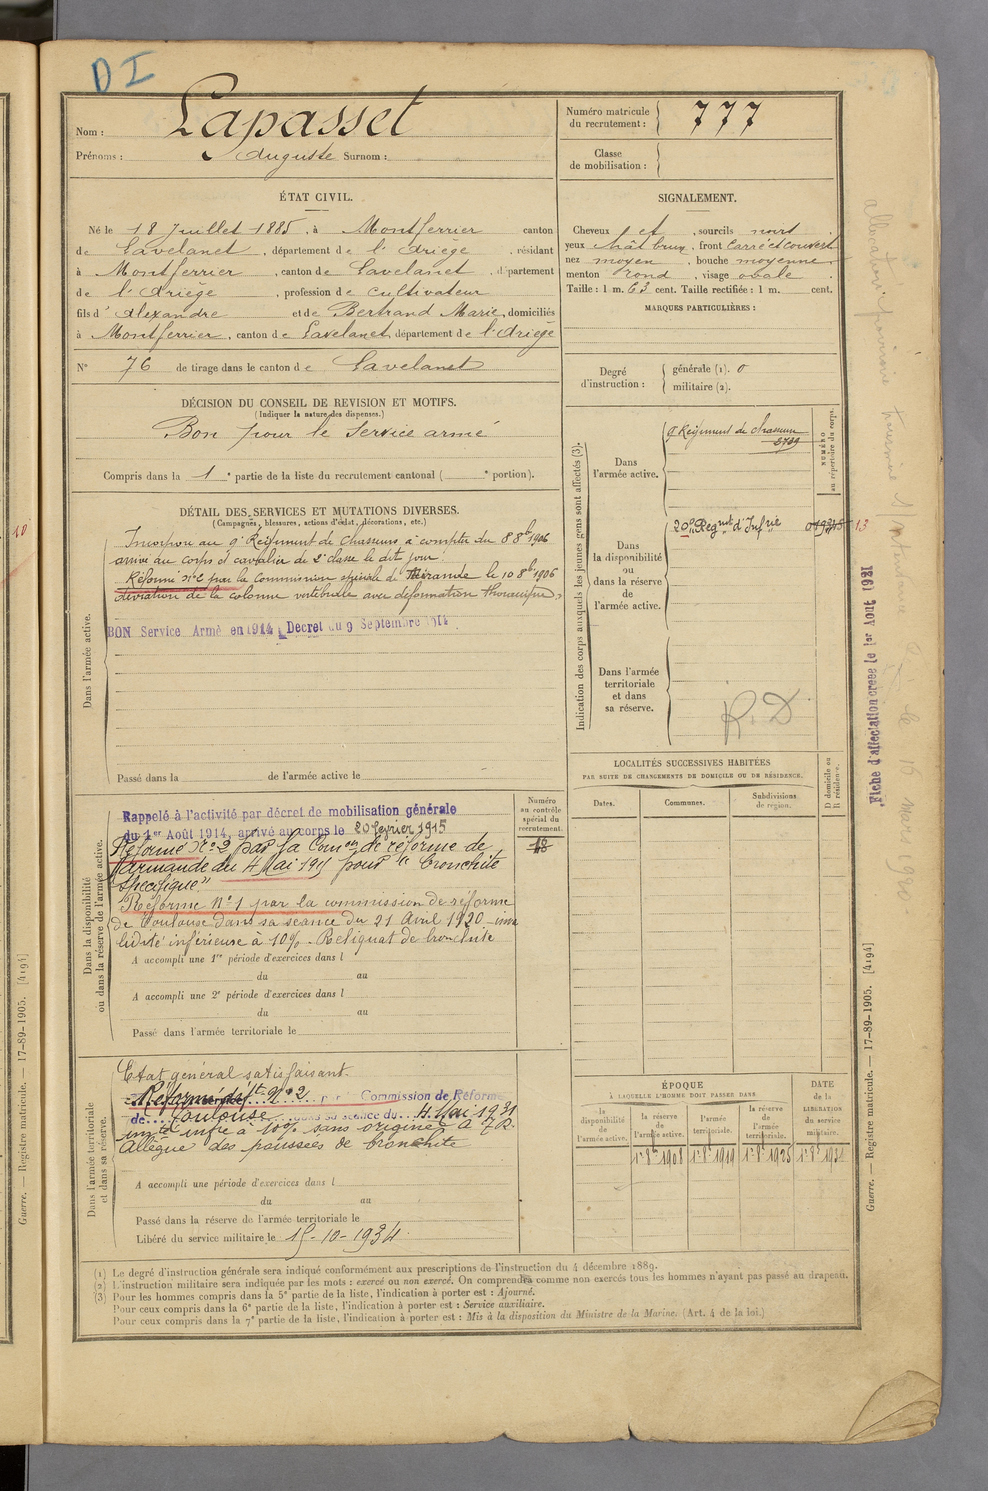 D I
Nom : Lapasset
Prénoms : Auguste Surnom :
Numéro matricule
du recrutement : 777
Classe
de mobilisation :
ÉTAT CIVIL.
Né le 18 Juillet 1885, à Montferrier canton
de Lavelanet, département de l'Ariège, résidant
à Montferrier, canton de Lavelanet, département
de l'Ariège, profession de cultivateur
fils d'Alexandre et de Bertrand Marie, domiciliés
à Montferrier, canton de Lavelanet, département de l'Ariège
N° 76 de tirage dans le canton de Lavelanet
SIGNALEMENT.
Cheveux et, sourcils noirs
yeux chât brun, front carré et couvert
nez moyen, bouche moyenne
menton rond, visage ovale.
Taille : 1 m. 63 cent. Taille rectifiée : 1 m. cent.
MARQUES PARTICULIÈRES :
Degré
d'instruction :
générale (1). 0
militaire (2).
DÉCISION DU CONSEIL DE REVISION ET MOTIFS.
(Indiquer la nature des dispenses.)
Bon pour le service armé
Compris dans la 1e partie de la liste du recrutement cantonal ( e portion).
DÉTAIL DES SERVICES ET MUTATIONS DIVERSES.
(Campagnes, blessures, actions d'éclat, décorations, etc.)
Dans l'armée active.
Incorporé au 9e Régiment de Chasseurs à compter du 8 8bre 1906
arrivé au corps et cavalier de 2e classe le dit jour.
Réformé n°2 par la Commission spéciale de Mirande le 10 8bre 1906
déviation de la colonne vertébrale avec déformation thoracique
BON Service Armé en 1914 Décret du 9 Septembre 1914
Passé dans la de l'armée active le
Indication des corps auxquels les jeunes gens sont affectés (3).
NUMÉRO
au répertoire du corps.
Dans
l'armée active.
9e Régiment de chasseurs
2799
Dans
la disponibilité
ou
dans la réserve
de
l'armée active.
20e Regmt d'Infrie
13
Dans l'armée
territoriale
et dans
sa réserve.
R. D
LOCALITÉS SUCCESSIVES HABITÉES
PAR SUITE DE CHANGEMENTS DE DOMICILE OU DE RÉSIDENCE.
Dates.
Communes.
Subdivisions
de région.
D domicile ou
R résidence.
Dans la disponibilité
ou dans la réserve de l'armée active.
Numéro
au contrôle
spécial du
recrutement.
18
Rappelé à l'activité par décret de mobilisation générale
du 1er Août 1914, arrivé au corps le 20 février 1915
Réformé n°2 par la Comon de réforme de
Marmande du 4 Mai 1915 pour "bronchite
spécifique"
Réformé N°1 par la commission de réforme
de Toulouse dans sa séance du 21 Avril 1920 - inva
lidité inférieure à 10% - Reliquat de bronchite
A accompli une 1re période d'exercices dans l
du au
A accompli une 2e période d'exercices dans l
du au
Passé dans l'armée territoriale le
Dans l'armée territoriale
et dans sa réserve.
Etat général satisfaisant.
Réformé déft N°2 par Commission de Réforme
de Toulouse dans sa séance du 4 Mai 1931
infre à 10% sans origine
Allègue des poussées de bronchite
A accompli une période d'exercices dans l
du au
Passé dans la réserve de l'armée territoriale le
Libéré du service militaire le 15-10-1934
ÉPOQUE
À LAQUELLE L'HOMME DOIT PASSER DANS
la
disponibilité
de
l'armée active.
la réserve
de
l'armée active.
l'armée
territoriale.
la réserve
de
l'armée
territoriale.
DATE
de la
LIBÉRATION
du service
militaire.
1er 8bre 1908
1er 8bre 1919
1er 8bre 1925
(1) Le degré d'instruction générale sera indiqué conformément aux prescriptions de l'instruction du 4 décembre 1889.
(2) L'instruction militaire sera indiquée par les mots : exercé ou non exercé. On comprendra comme non exercés tous les hommes n'ayant pas passé au drapeau.
(3) Pour les hommes compris dans la 5e partie de la liste, l'indication à porter est : Ajourné.
Pour ceux compris dans la 6e partie de la liste, l'indication à porter est : Service auxiliaire.
Pour ceux compris dans la 7e partie de la liste, l'indication à porter est : Mis à la disposition du Ministre de la Marine. (Art. 4 de la loi.)
allocation provisoire transmise s/intendance le 16 mars 1920
Fiche d'affectation créée le 1er Août 1921
Guerre. — Registre matricule. — 17-89-1905. [4194]
Guerre. — Registre matricule. — 17-89-1905. [4194]